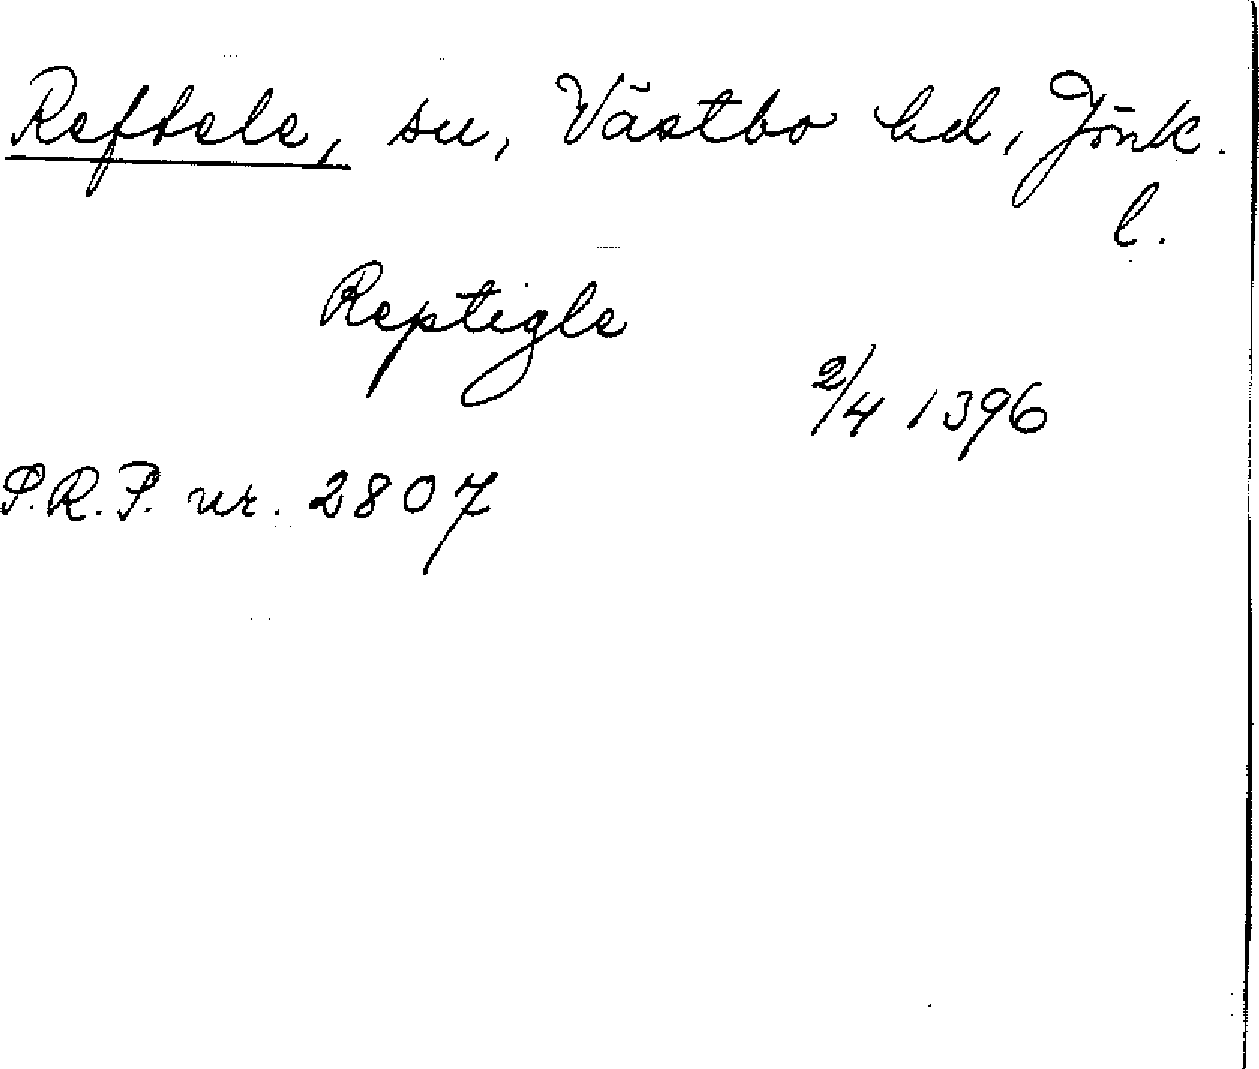 Reftele, sn, Västbo hd, Jönk.
l.
Reptigle
2/4 1396
S.R.P. nr. 2807